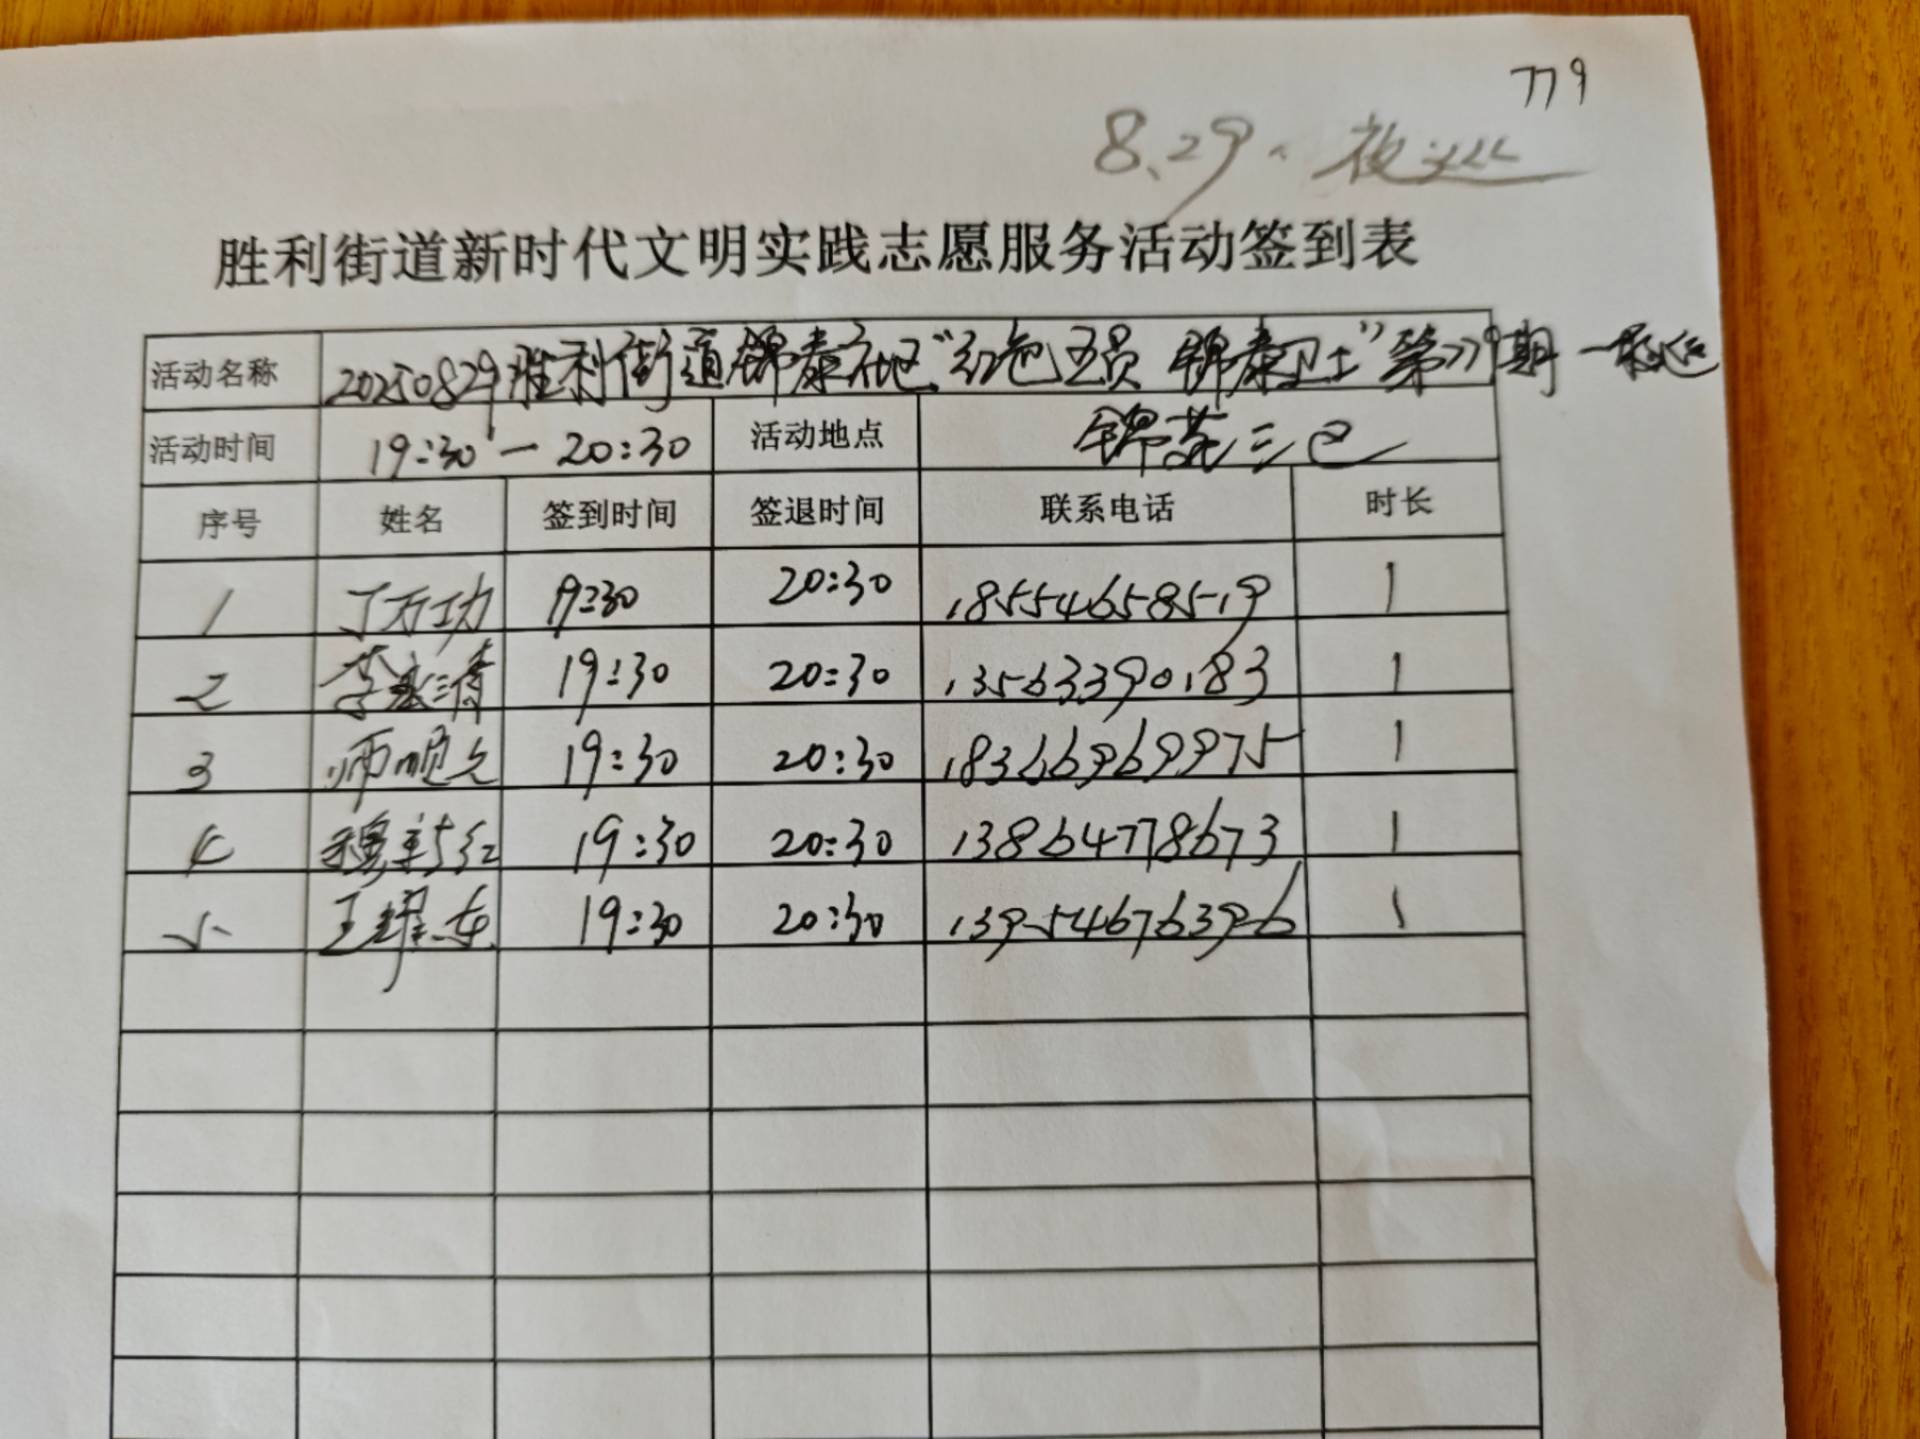 779
8.29. 夜巡
胜利街道新时代文明实践志愿服务活动签到表
活动名称 20250829胜利街道锦泰社区“红色五员 锦泰卫士”第779期 — 夜巡
活动时间 19:30 — 20:30 活动地点 锦苑三区
序号 姓名 签到时间 签退时间 联系电话 时长
1 丁万功 19:30 20:30 18554658519 1
2 李清 19:30 20:30 13563390183 1
3 师顺 19:30 20:30 18366969975 1
4 穆红 19:30 20:30 13864778673 1
5 王耀东 19:30 20:30 13954676396 1